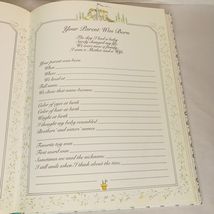 Your Parent Was Born
The day I had a baby
I was a Mother and a Wife.
Your parent was born
What
Where
We lived at
Full name
We chose that name because
Color of eyes at birth
Color of hair at birth
Weight at birth
I thought my baby resembled
Brothers' and sisters' names
Favorite toy was
First word was
Sometimes we used the nickname
I still smile when I think about the time